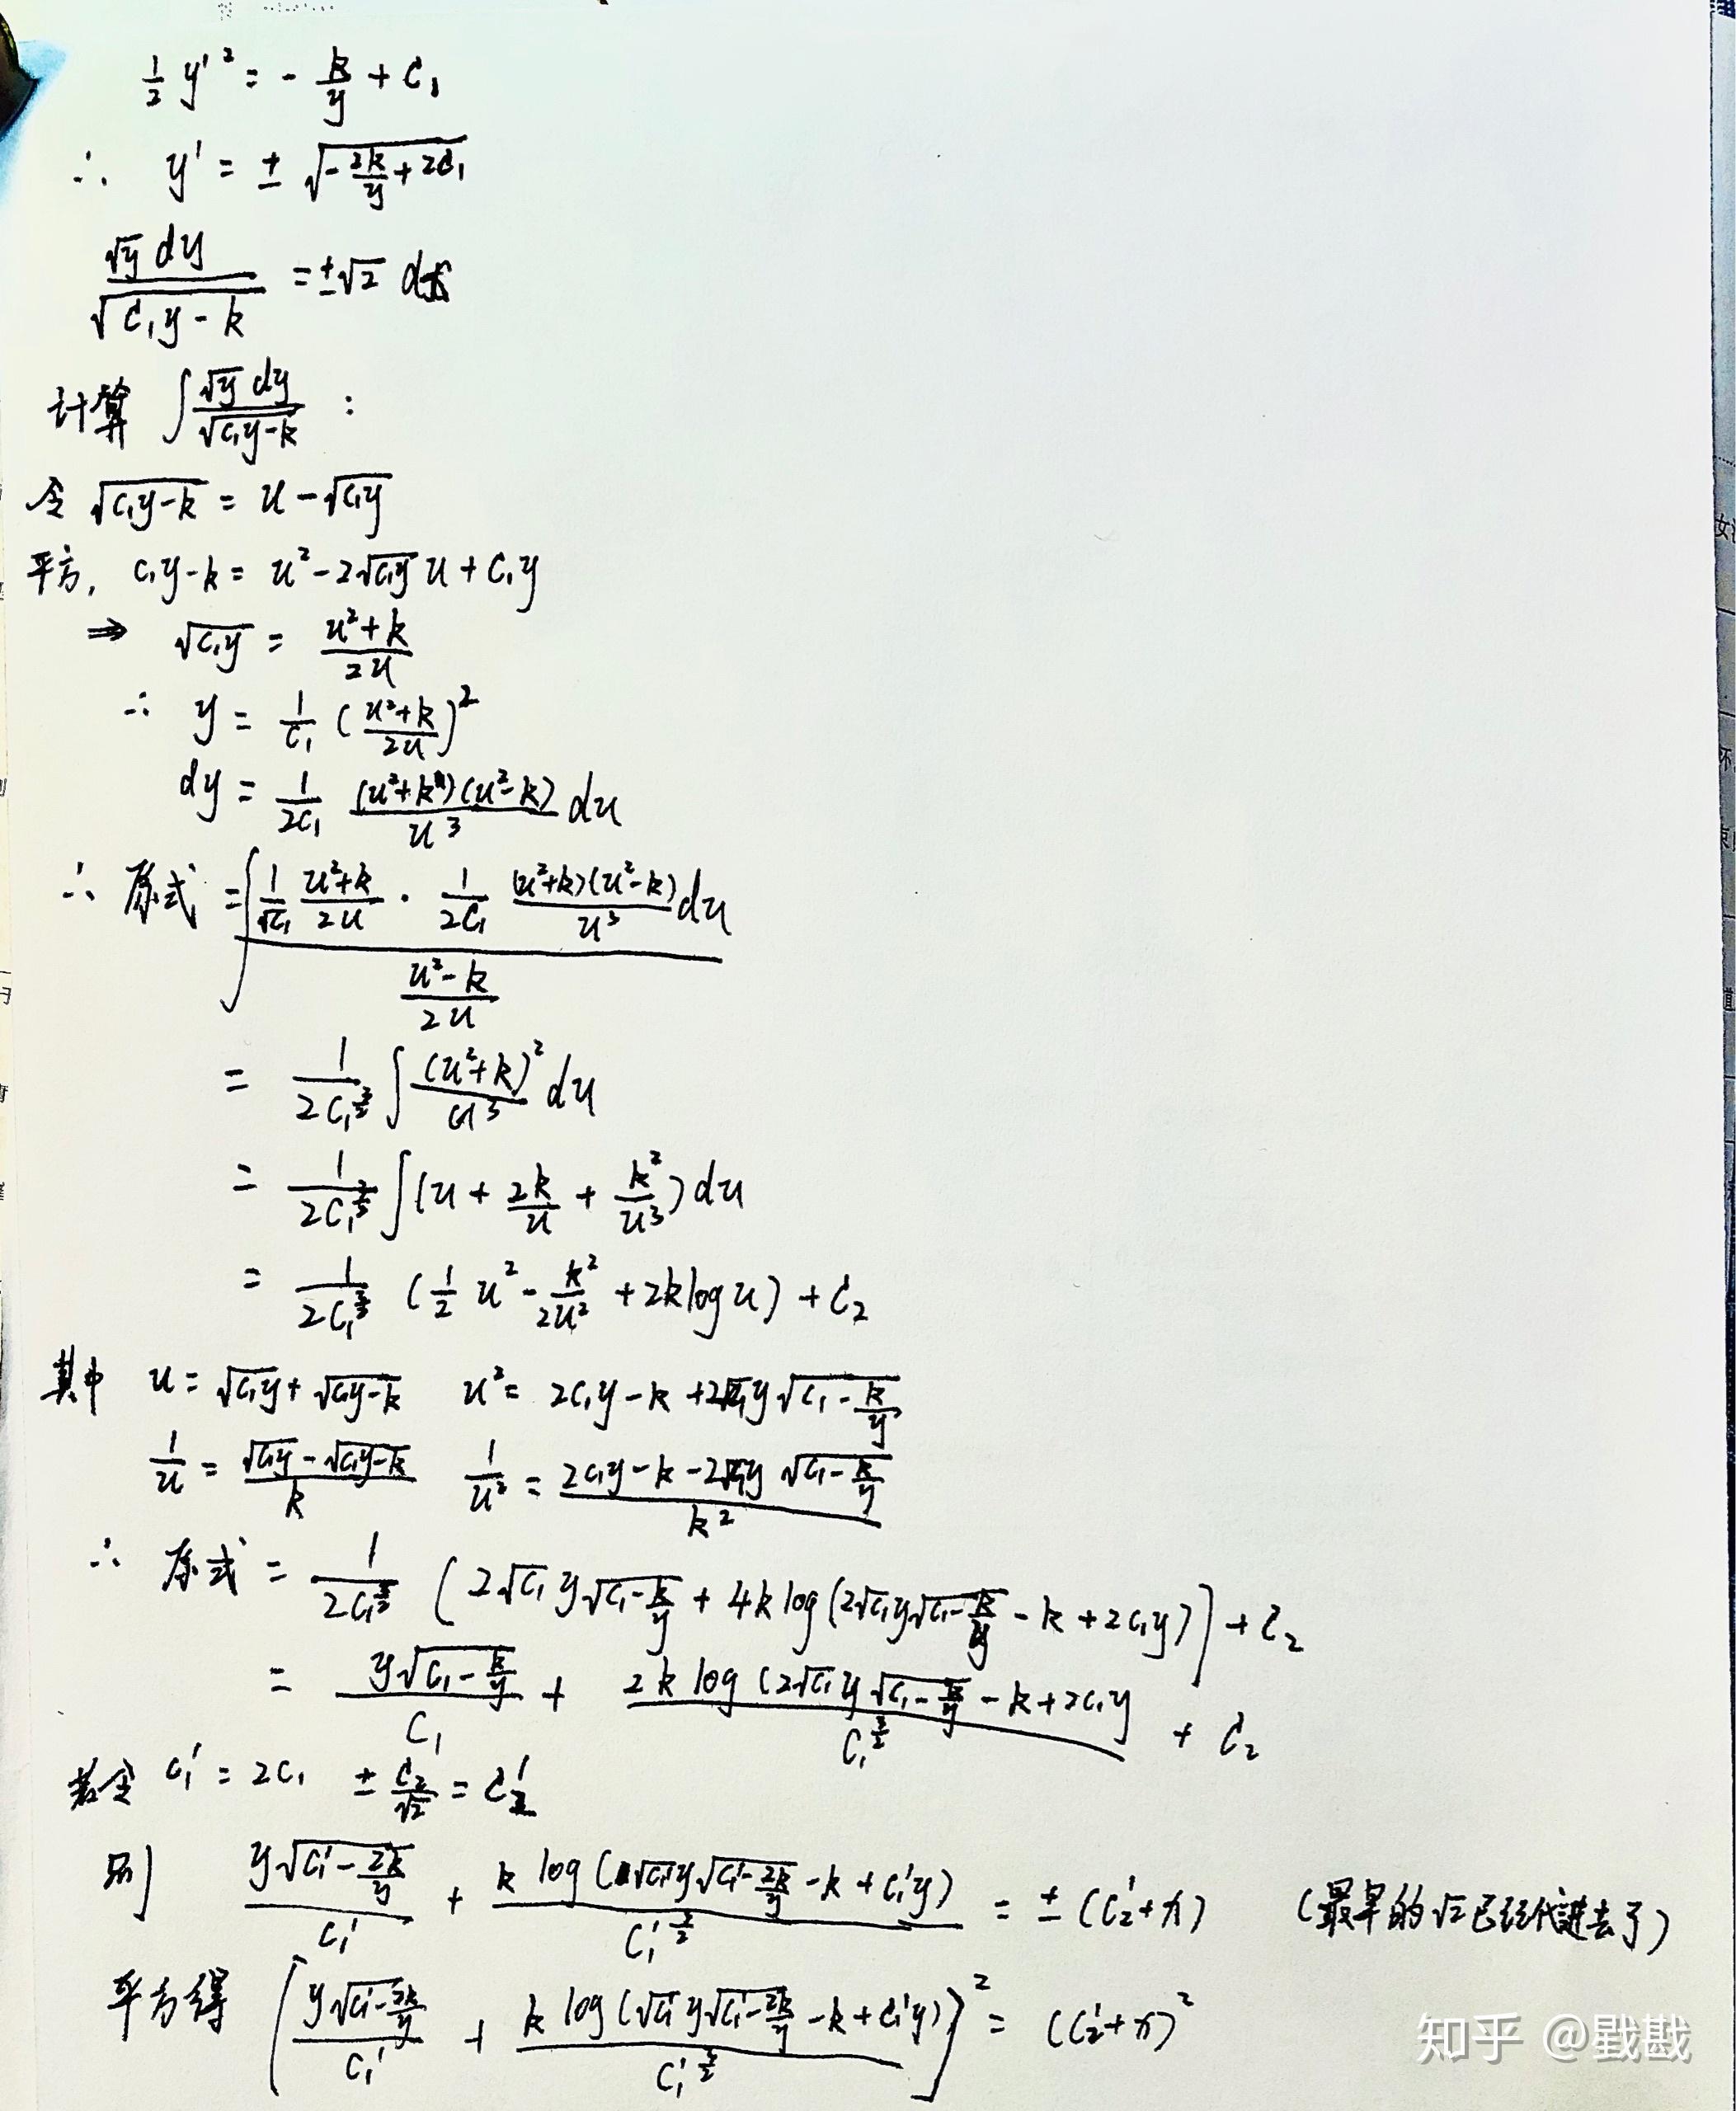 ½ y'² = - k/y + C₁
∴ y' = ± √(-2k/y + 2C₁)
√y dy / √(C₁y - k) = ±√2 dx
计算 ∫ √y dy / √(C₁y-k) :
令 √(C₁y-k) = u - √(C₁y)
平方, C₁y-k = u² - 2√(C₁y) u + C₁y
⇒ √(C₁y) = (u²+k)/(2u)
∴ y = 1/C₁ ((u²+k)/(2u))²
dy = 1/(2C₁) (u²+k)(u²-k)/u³ du
∴ 原式 = ∫ [1/√C₁ (u²+k)/(2u) · 1/(2C₁) (u²+k)(u²-k)/u³ du] / [(u²-k)/(2u)]
= 1/(2C₁^(3/2)) ∫ (u²+k)²/u³ du
= 1/(2C₁^(3/2)) ∫ (u + 2k/u + k²/u³) du
= 1/(2C₁^(3/2)) (½ u² - k²/(2u²) + 2k log u) + C₂
其中 u = √(C₁y) + √(C₁y-k) u² = 2C₁y - k + 2√C₁ y √(C₁ - k/y)
1/u = (√(C₁y) - √(C₁y-k))/k 1/u² = (2C₁y - k - 2√C₁ y √(C₁ - k/y))/k²
∴ 原式 = 1/(2C₁^(3/2)) [2√C₁ y √(C₁ - k/y) + 4k log(2√C₁ y √(C₁ - k/y) - k + 2C₁y)] + C₂
= y√(C₁ - k/y)/C₁ + 2k log(2√C₁ y √(C₁ - k/y) - k + 2C₁y / C₁^(3/2) + C₂
若令 C₁' = 2C₁ ± C₂/√2 = C₂'
则 y√(C₁' - 2k/y)/C₁' + k log(√C₁' y √(C₁' - 2k/y) - k + C₁'y)/C₁'^(3/2) = ± (C₂' + x) (最早的√2已经代进去了)
平方得 [y√(C₁' - 2k/y)/C₁' + k log(√C₁' y √(C₁' - 2k/y) - k + C₁'y)/C₁'^(3/2)]² = (C₂' + x)²
知乎 @戥戡